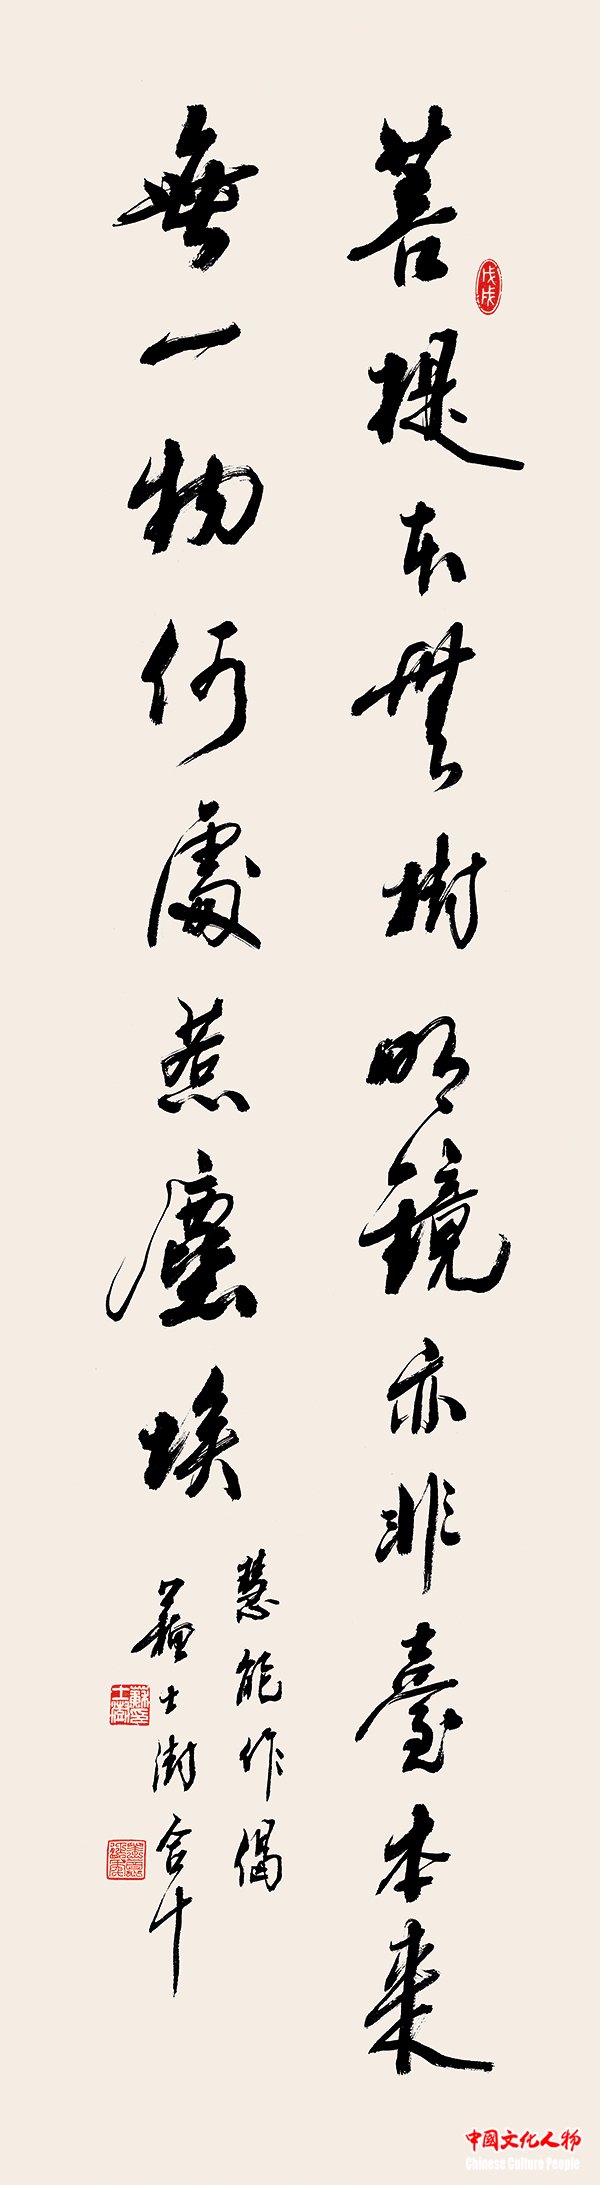 菩提本無樹明鏡亦非臺本來
無一物何處惹塵埃
慧能作偈
蘇士澍合十
戊戌
中國文化人物
Chinese Culture People